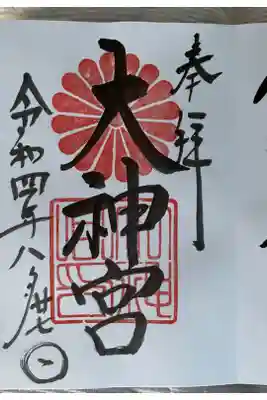 奉拝
大神宮
令和四年八月廿七日